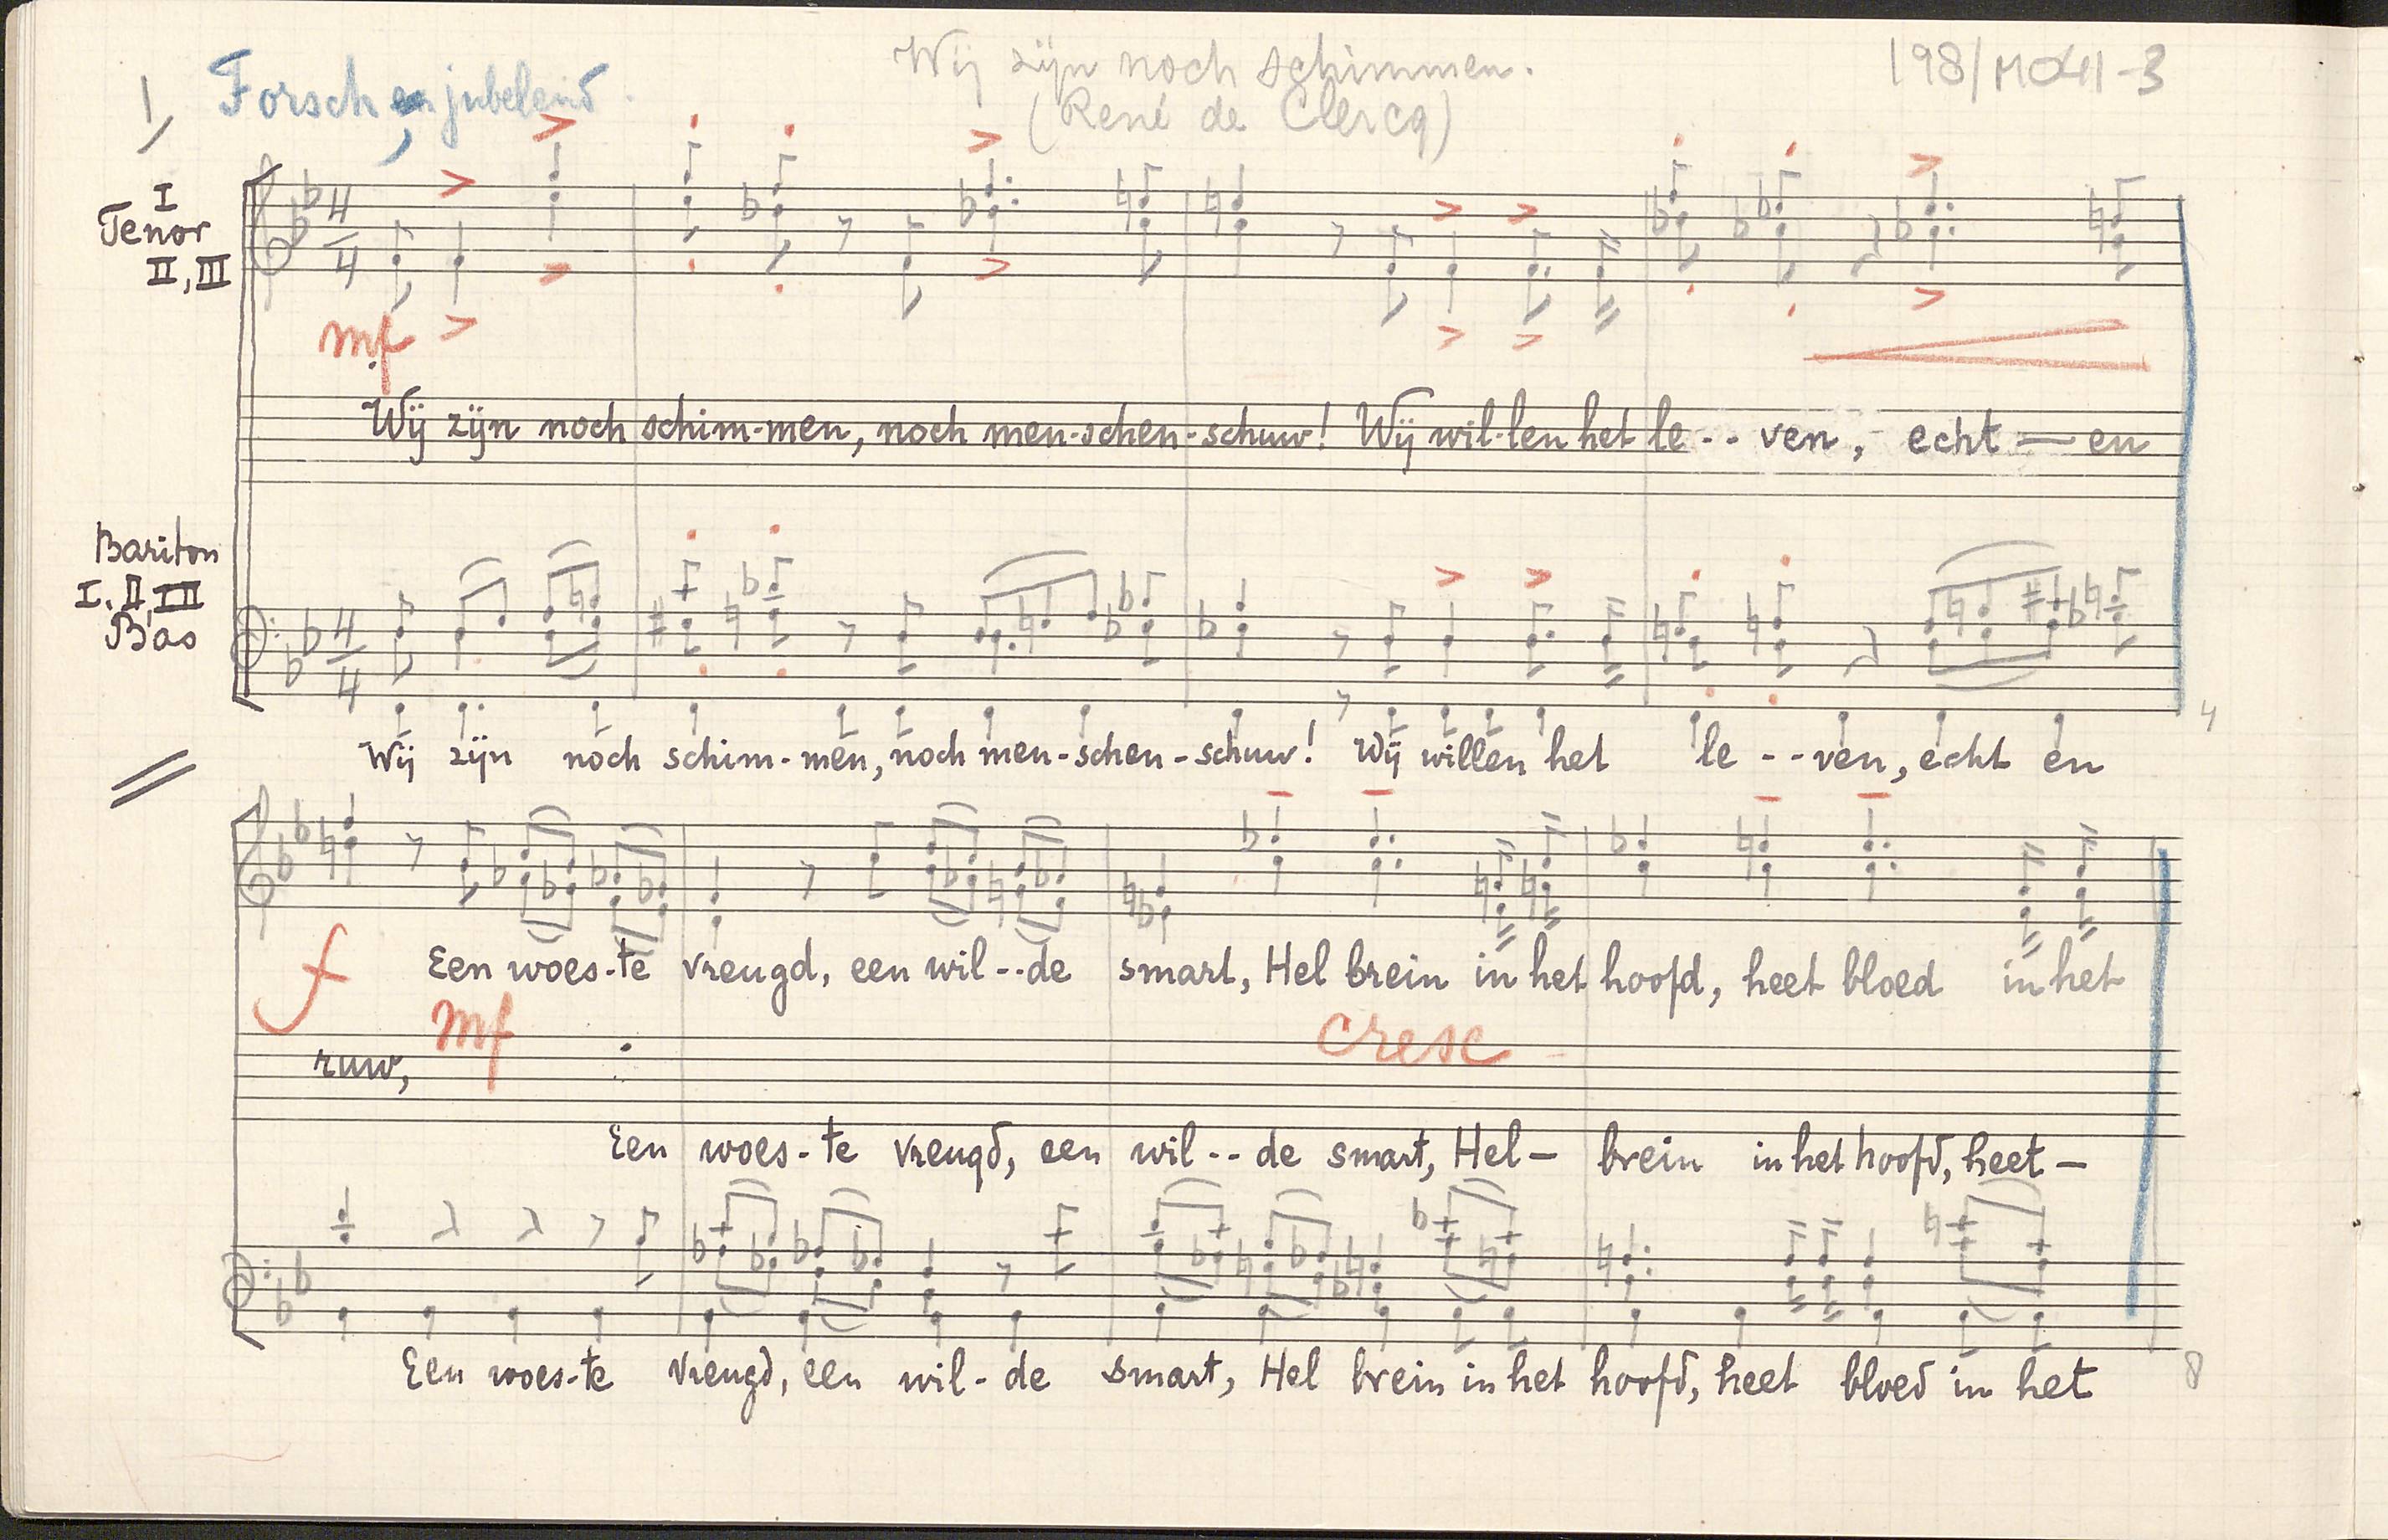 Wij zijn noch schimmen.
198/MO41-3
1, Forsch en jubelend.
(René de Clercq)
I
Tenor
II, III
mf
Wij zijn noch schim-men, noch men-schen-schuw! Wij wil-len het le -- ven, echt — en
Bariton
I. II, III
Bas
Wij zijn noch schim-men, noch men-schen-schuw! Wij willen het le --ven, echt en
4
f Een woes-te vreugd, een wil--de smart, Hel brein in het hoofd, heet bloed in het
mf cresc
ruw,
Een woes-te vreugd, een wil--de smart, Hel— brein in het hoofd, heet—
Een woes-te vreugd, een wil-de smart, Hel brein in het hoofd, heet bloed in het
8